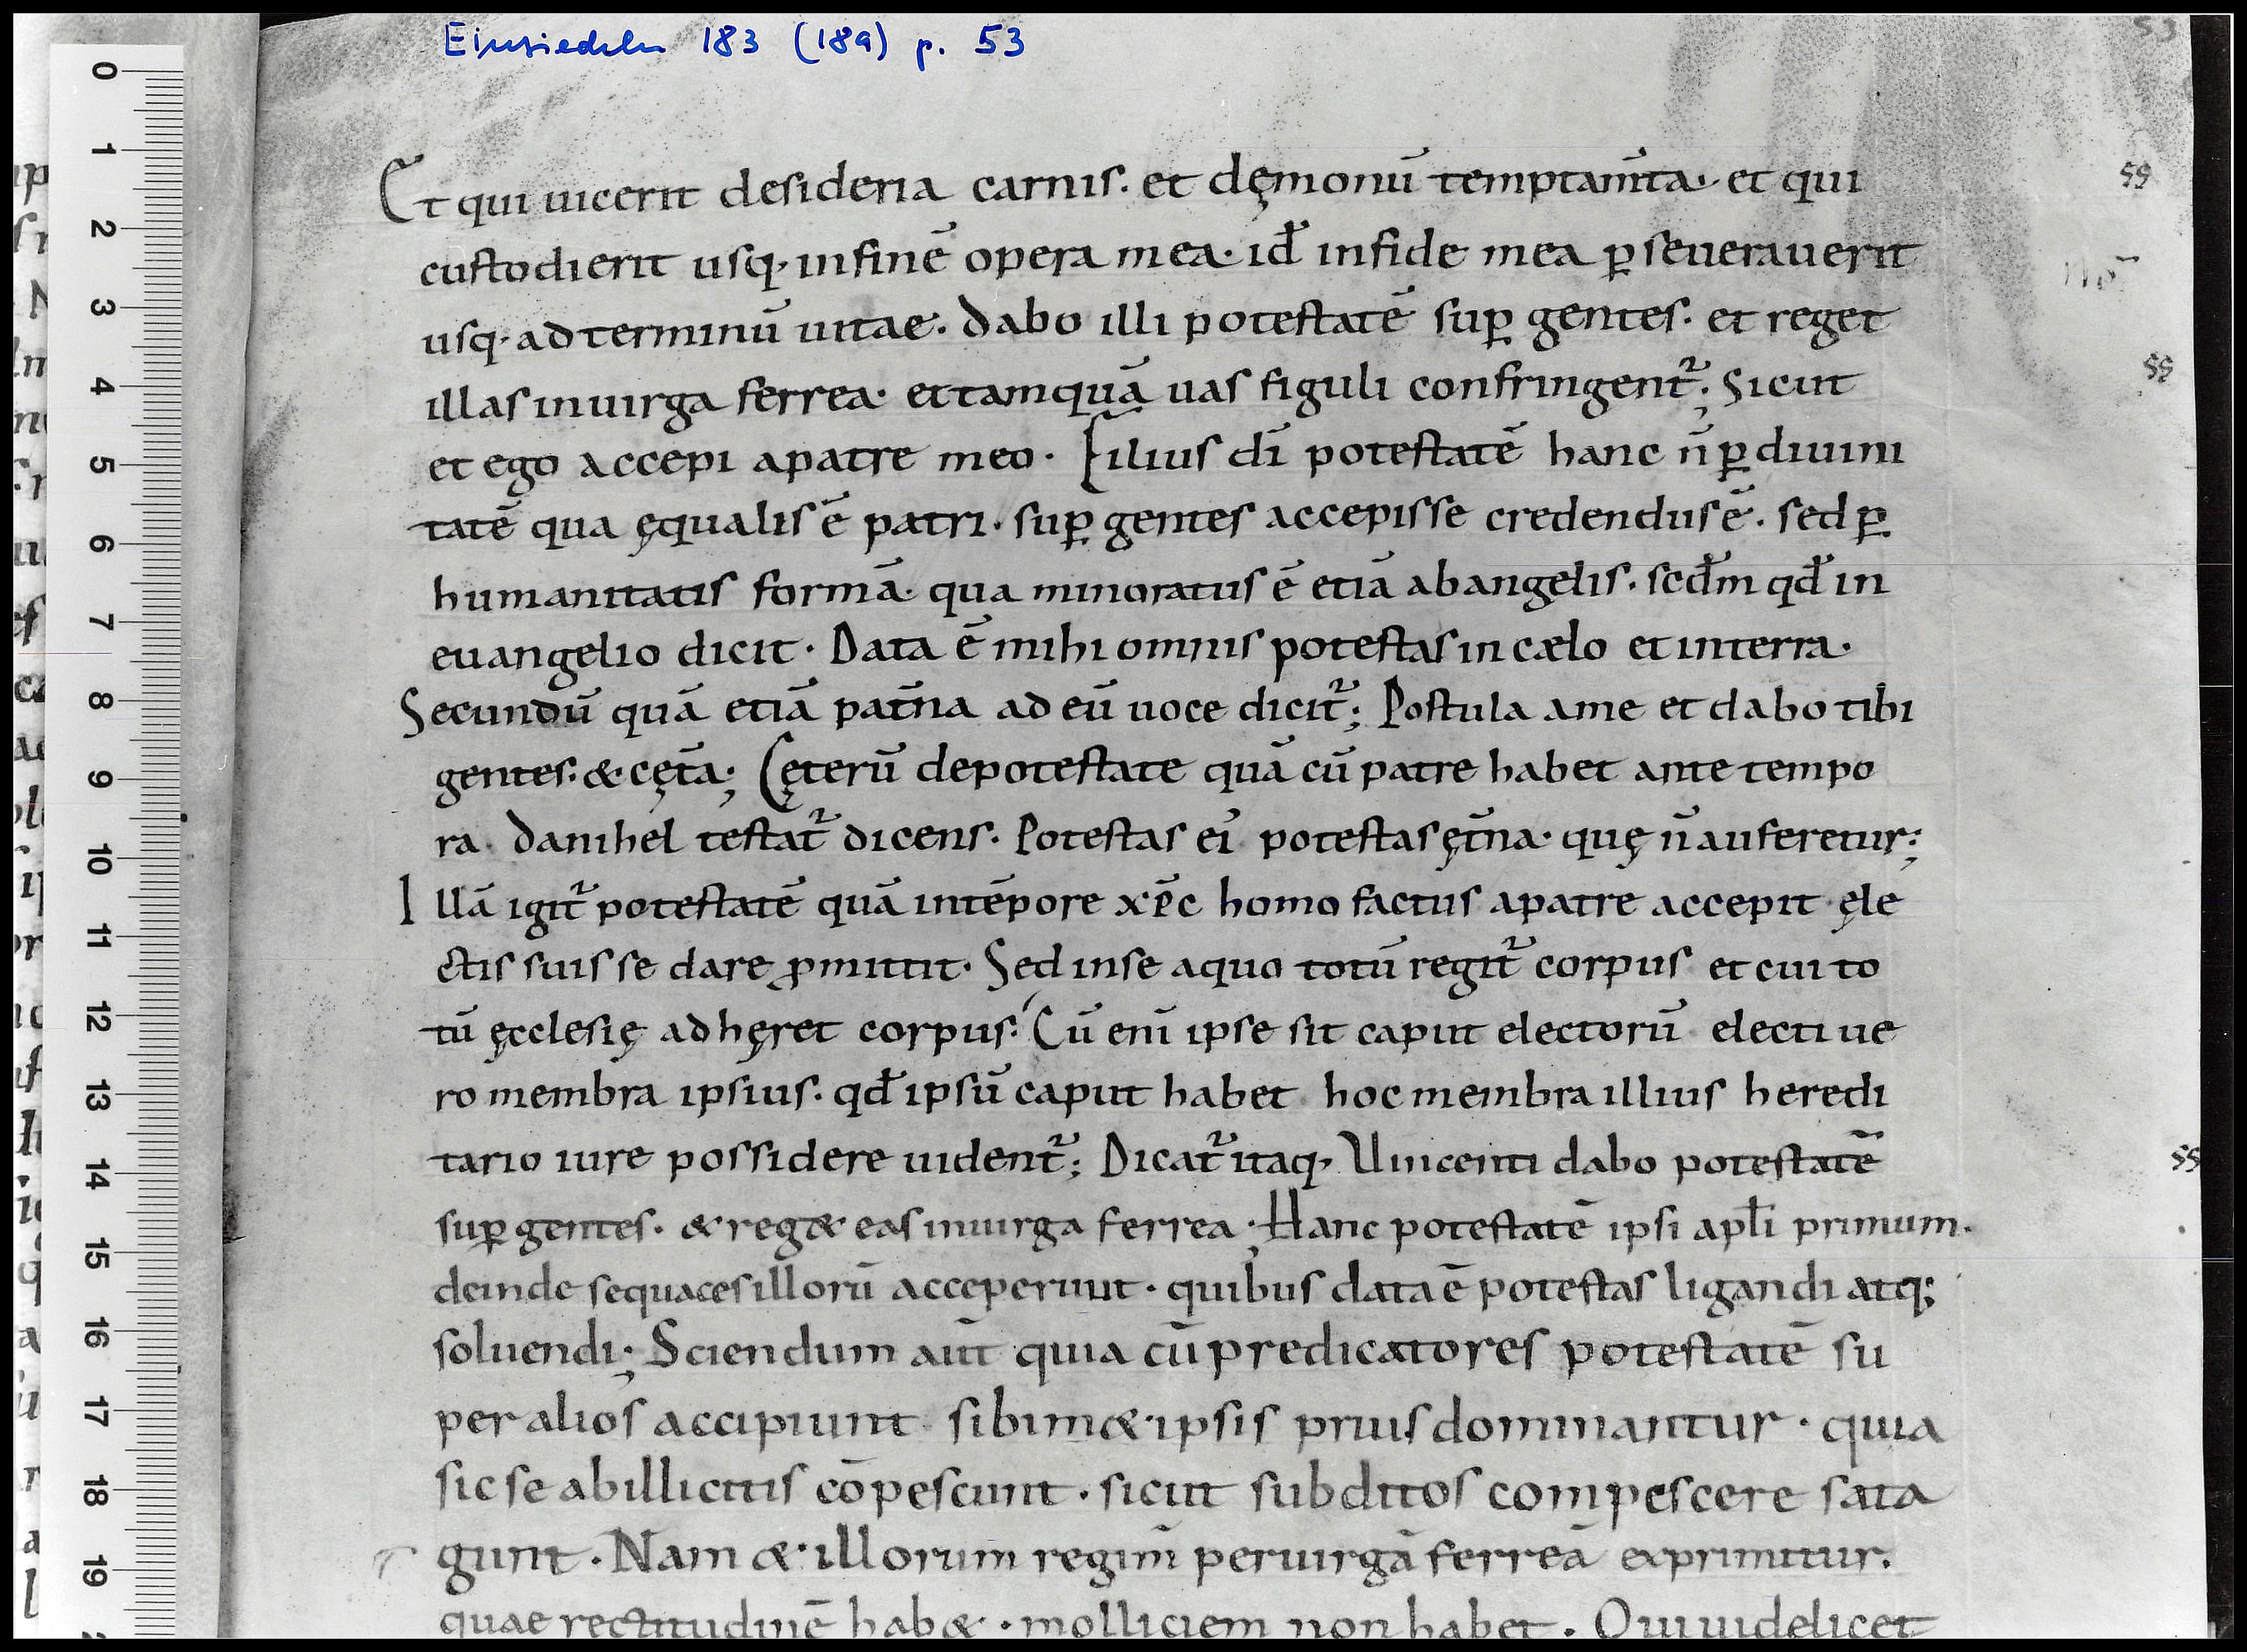 Einsiedeln 183 (189) p. 53
53
Et qui uicerit desideria carnis. et dęmonū temptam̄ta. et qui
custodierit usq. infinē opera mea. id̄ infide mea ꝑseuerauerit
usq. adterminū uitae. dabo illi potestatē suꝑ gentes. et reget
illas inuirga ferrea. ettamquā uas figuli confringent᷑; Sicut
et ego accepi apatre meo. Filius dī potestatē hanc n̄ ꝑ diuini
tatē qua ęqualis ē patri. suꝑ gentes accepisse credendus ē. sed ꝑ
humanitatis formā. qua minoratus ē etiā abangelis. scd̄m qd̄ in
euangelio dicit. Data ē mihi omnis potestas in cælo et interra.
Secundū quā etiā pat̄na ad eū uoce dicit᷑; Postula ame et dabo tibi
gentes. & cęt̄a; Cęterū depotestate quā cū patre habet ante tempo
ra. danihel testat᷑ dicens. Potestas eī potestas ęt̄na. quę n̄ auferetur;
Illā igit᷑ potestatē quā intēpore xp̄c homo factus apatre accepit ęle
ctis suis se dare ꝓmittit. Sed inse aquo totū regit᷑ corpus et cui to
tū ęcclesię adhęret corpus. Cū enī ipse sit caput electorū electi ue
ro membra ipsius. qd̄ ipsū caput habet hoc membra illius heredi
tario iure possidere uident᷑; Dicat᷑ itaq. Uincenti dabo potestatē
suꝑ gentes. & reg& eas inuirga ferrea; Hanc potestatē ipsi apl̄i primum.
deinde sequaces illorū acceperunt. quibus data ē potestas ligandi atq;
soluendi; Sciendum aūt quia cū predicatores potestatē su
per alios accipiunt sibim& ipsis prius dominantur. quia
sic se abillicitis cōpescunt. sicut subditos compescere sata
gunt. Nam & illorum regim̄ peruirgā ferreā exprimitur.
quae rectitudinē hab&. molliciem non habet. Qui uidelicet